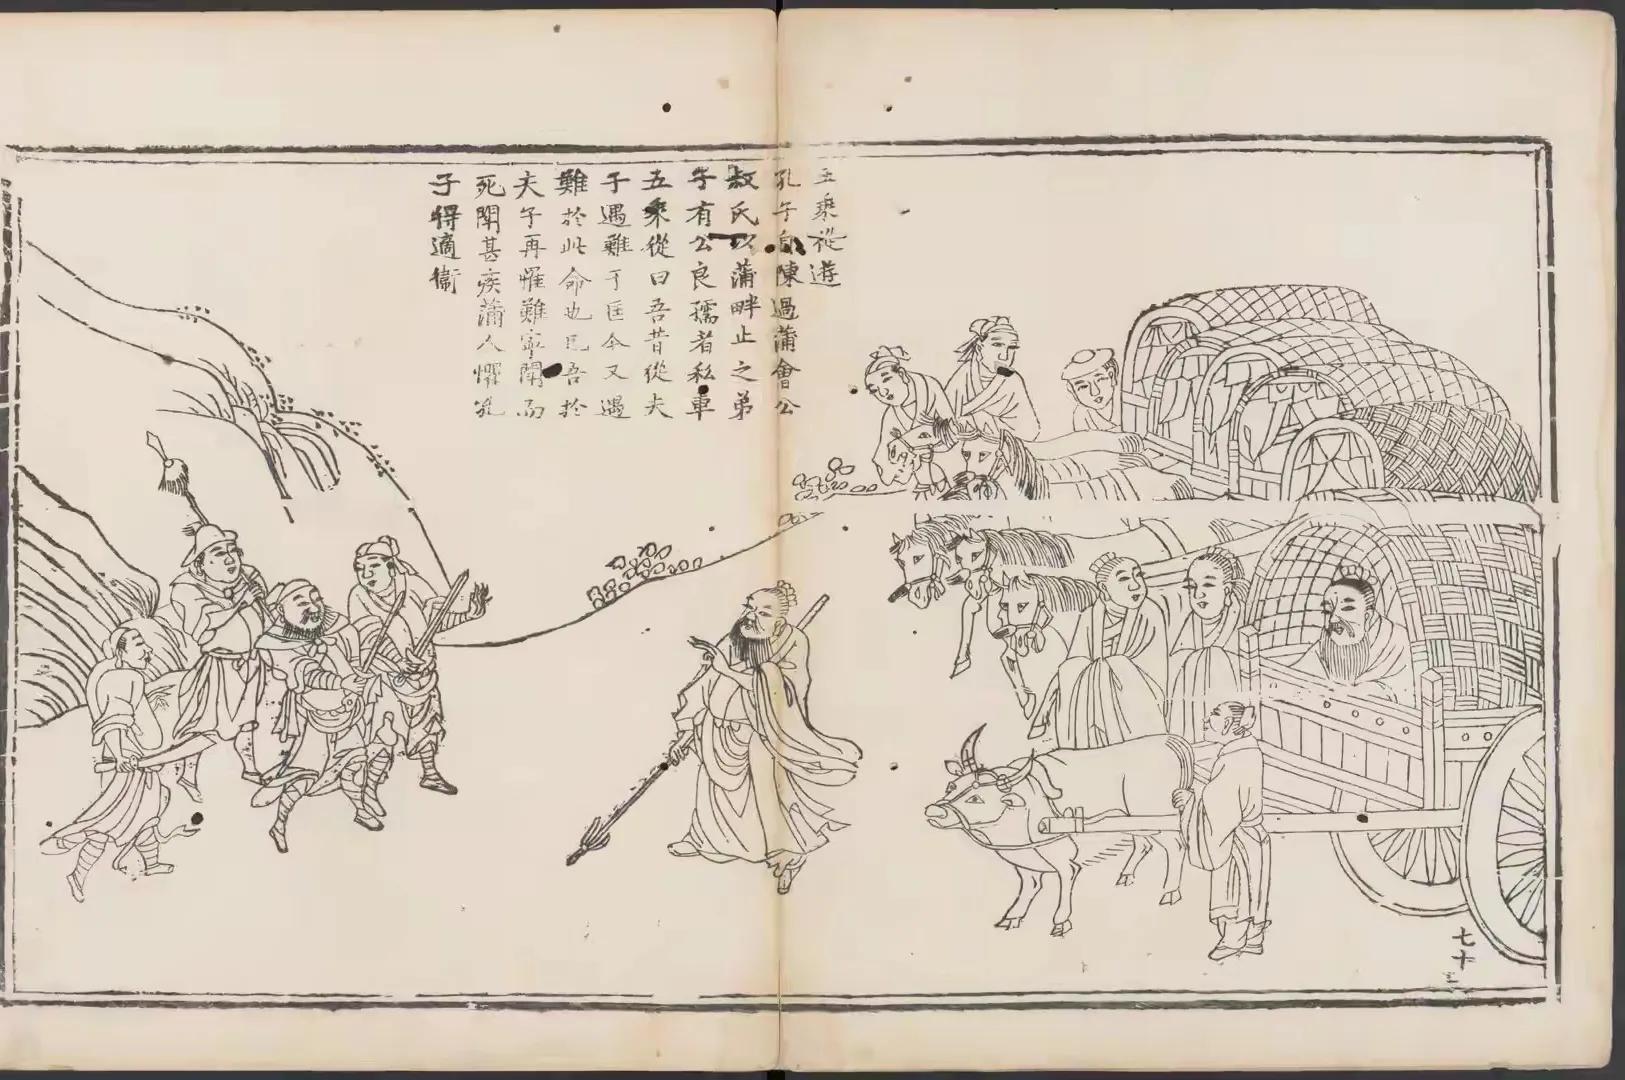 五乘從遊
孔子自陳過蒲會公
叔氏以蒲畔止之弟
子有公良孺者私車
五乘從曰吾昔從夫
子遇難于匡今又遇
難於此命也已吾於
夫子再罹難寧鬭而
死鬭甚疾蒲人懼孔
子得適衞
七十